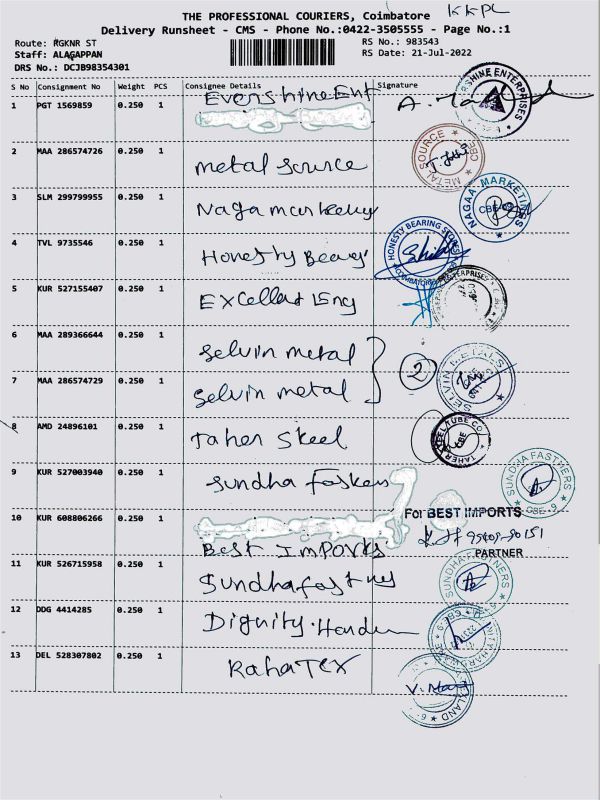 THE PROFESSIONAL COURIERS, Coimbatore KKPL
Delivery Runsheet - CMS - Phone No.:0422-3505555 - Page No.:1
Route: RGKNR ST RS No.: 983543
Staff: ALAGAPPAN RS Date: 21-Jul-2022
DRS No.: DCJB98354301
S No Consignment No Weight PCS Consignee Details Signature
1 PGT 1569859 0.250 1 Evershine Ent
2 MAA 286574726 0.250 1 metal source METAL SOURCE CBE
3 SLM 299799955 0.250 1 Naga marketing NAGAA MARKETINGS CBE
4 TVL 9735546 0.250 1 Honesty Bearing HONESTY BEARING STORES COIMBATORE
5 KUR 527155407 0.250 1 Excellent Eng ENTERPRISES
6 MAA 289366644 0.250 1 Selvin metal
7 MAA 286574729 0.250 1 Selvin metal 2 SELVIN METALS
8 AMD 24896101 0.250 1 Taher Steel TAHER STEEL TUBE CO. CBE
9 KUR 527003940 0.250 1 Sundha Fastners SUNDHA FASTNERS CBE-6
10 KUR 608806266 0.250 1 Best Imports For BEST IMPORTS
PARTNER
11 KUR 526715958 0.250 1 Sundha fastners SUNDHA FASTNERS
12 DDG 4414285 0.250 1 Dignity Hardw
13 DEL 528307802 0.250 1 RahaTex